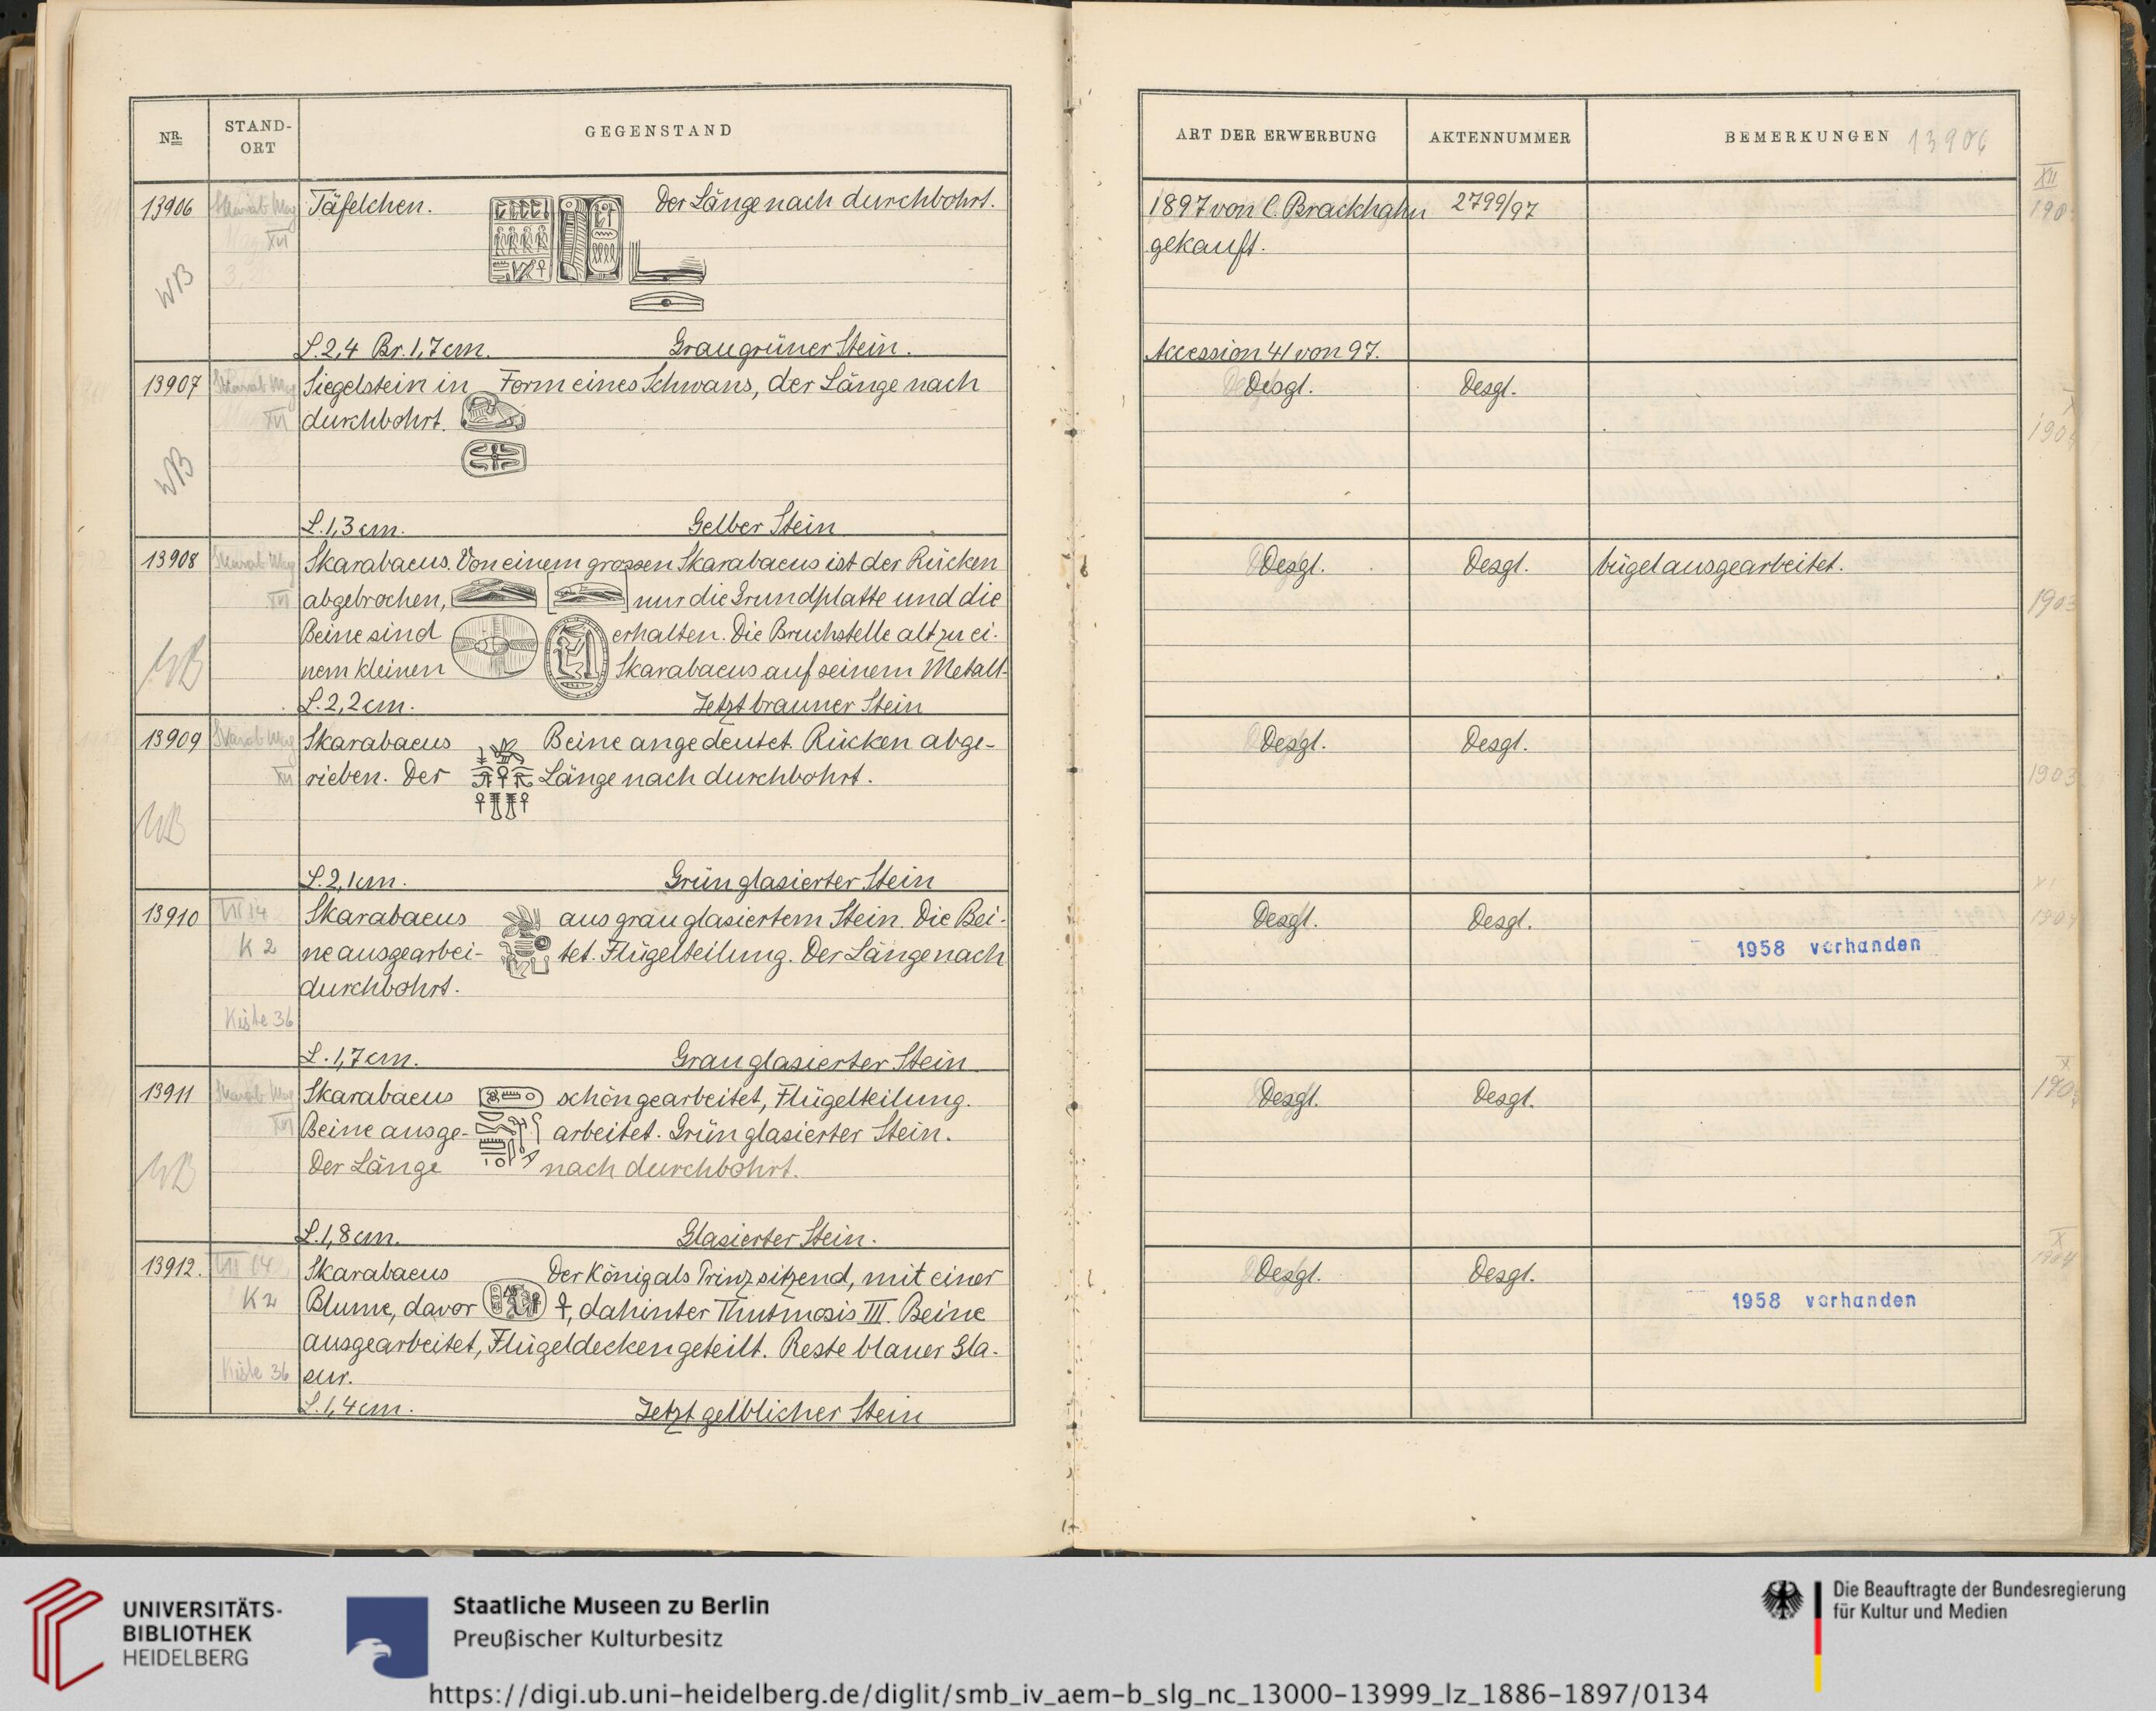 NR.
STAND-
ORT
GEGENSTAND
13906
Skarab Mag
XII
WB
Täfelchen.
Der Länge nach durchbohrt.
L. 2,4 Br. 1,7 cm.
Graugrüner Stein.
13907
Skarab Mag
WB
Siegelstein in Form eines Schwans, der Länge nach
durchbohrt.
L. 1,3 cm.
Gelber Stein
13908
Skarab Mag
WB
Skarabaeus. Von einem grossen Skarabaeus ist der Rücken
abgebrochen, nur die Grundplatte und die
Beine sind erhalten. Die Bruchstelle alt zu ei-
nem kleinen Skarabaeus auf seinem Metall-
L. 2,2 cm.
Jetzt brauner Stein
13909
Skarab Mag
WB
Skarabaeus Beine angedeutet. Rücken abge-
rieben. Der Länge nach durchbohrt.
L. 2,1 cm.
Grün glasierter Stein
13910
VII 14
K 2
Kiste 36
Skarabaeus aus grau glasiertem Stein. Die Bei-
ne ausgearbei- tet. Flügelteilung. Der Länge nach
durchbohrt.
L. 1,7 cm.
Grau glasierter Stein
13911
Skarab Mag
WB
Skarabaeus schön gearbeitet, Flügelteilung.
Beine ausge- arbeitet. Grün glasierter Stein.
Der Länge nach durchbohrt.
L. 1,8 cm.
Glasierter Stein.
13912.
VII 14
K 2
Kiste 36
Skarabaeus Der König als Prinz sitzend, mit einer
Blume, davor ☥, dahinter Thutmosis III. Beine
ausgearbeitet, Flügeldecken geteilt. Reste blauer Gla-
sur.
L. 1,4 cm.
Jetzt gelblicher Stein
ART DER ERWERBUNG
AKTENNUMMER
BEMERKUNGEN
13906
1897 von C. Brackhahn
gekauft.
2799/97
Accession 41 von 97.
Desgl. Desgl.
Desgl. Desgl. bügel ausgearbeitet.
1903
Desgl. Desgl.
1903
Desgl. Desgl.
1958 vorhanden
1904
Desgl. Desgl.
Desgl. Desgl.
1958 vorhanden
X
1904
UNIVERSITÄTS-
BIBLIOTHEK
HEIDELBERG
Staatliche Museen zu Berlin
Preußischer Kulturbesitz
Die Beauftragte der Bundesregierung
für Kultur und Medien
https://digi.ub.uni-heidelberg.de/diglit/smb_iv_aem-b_slg_nc_13000-13999_lz_1886-1897/0134